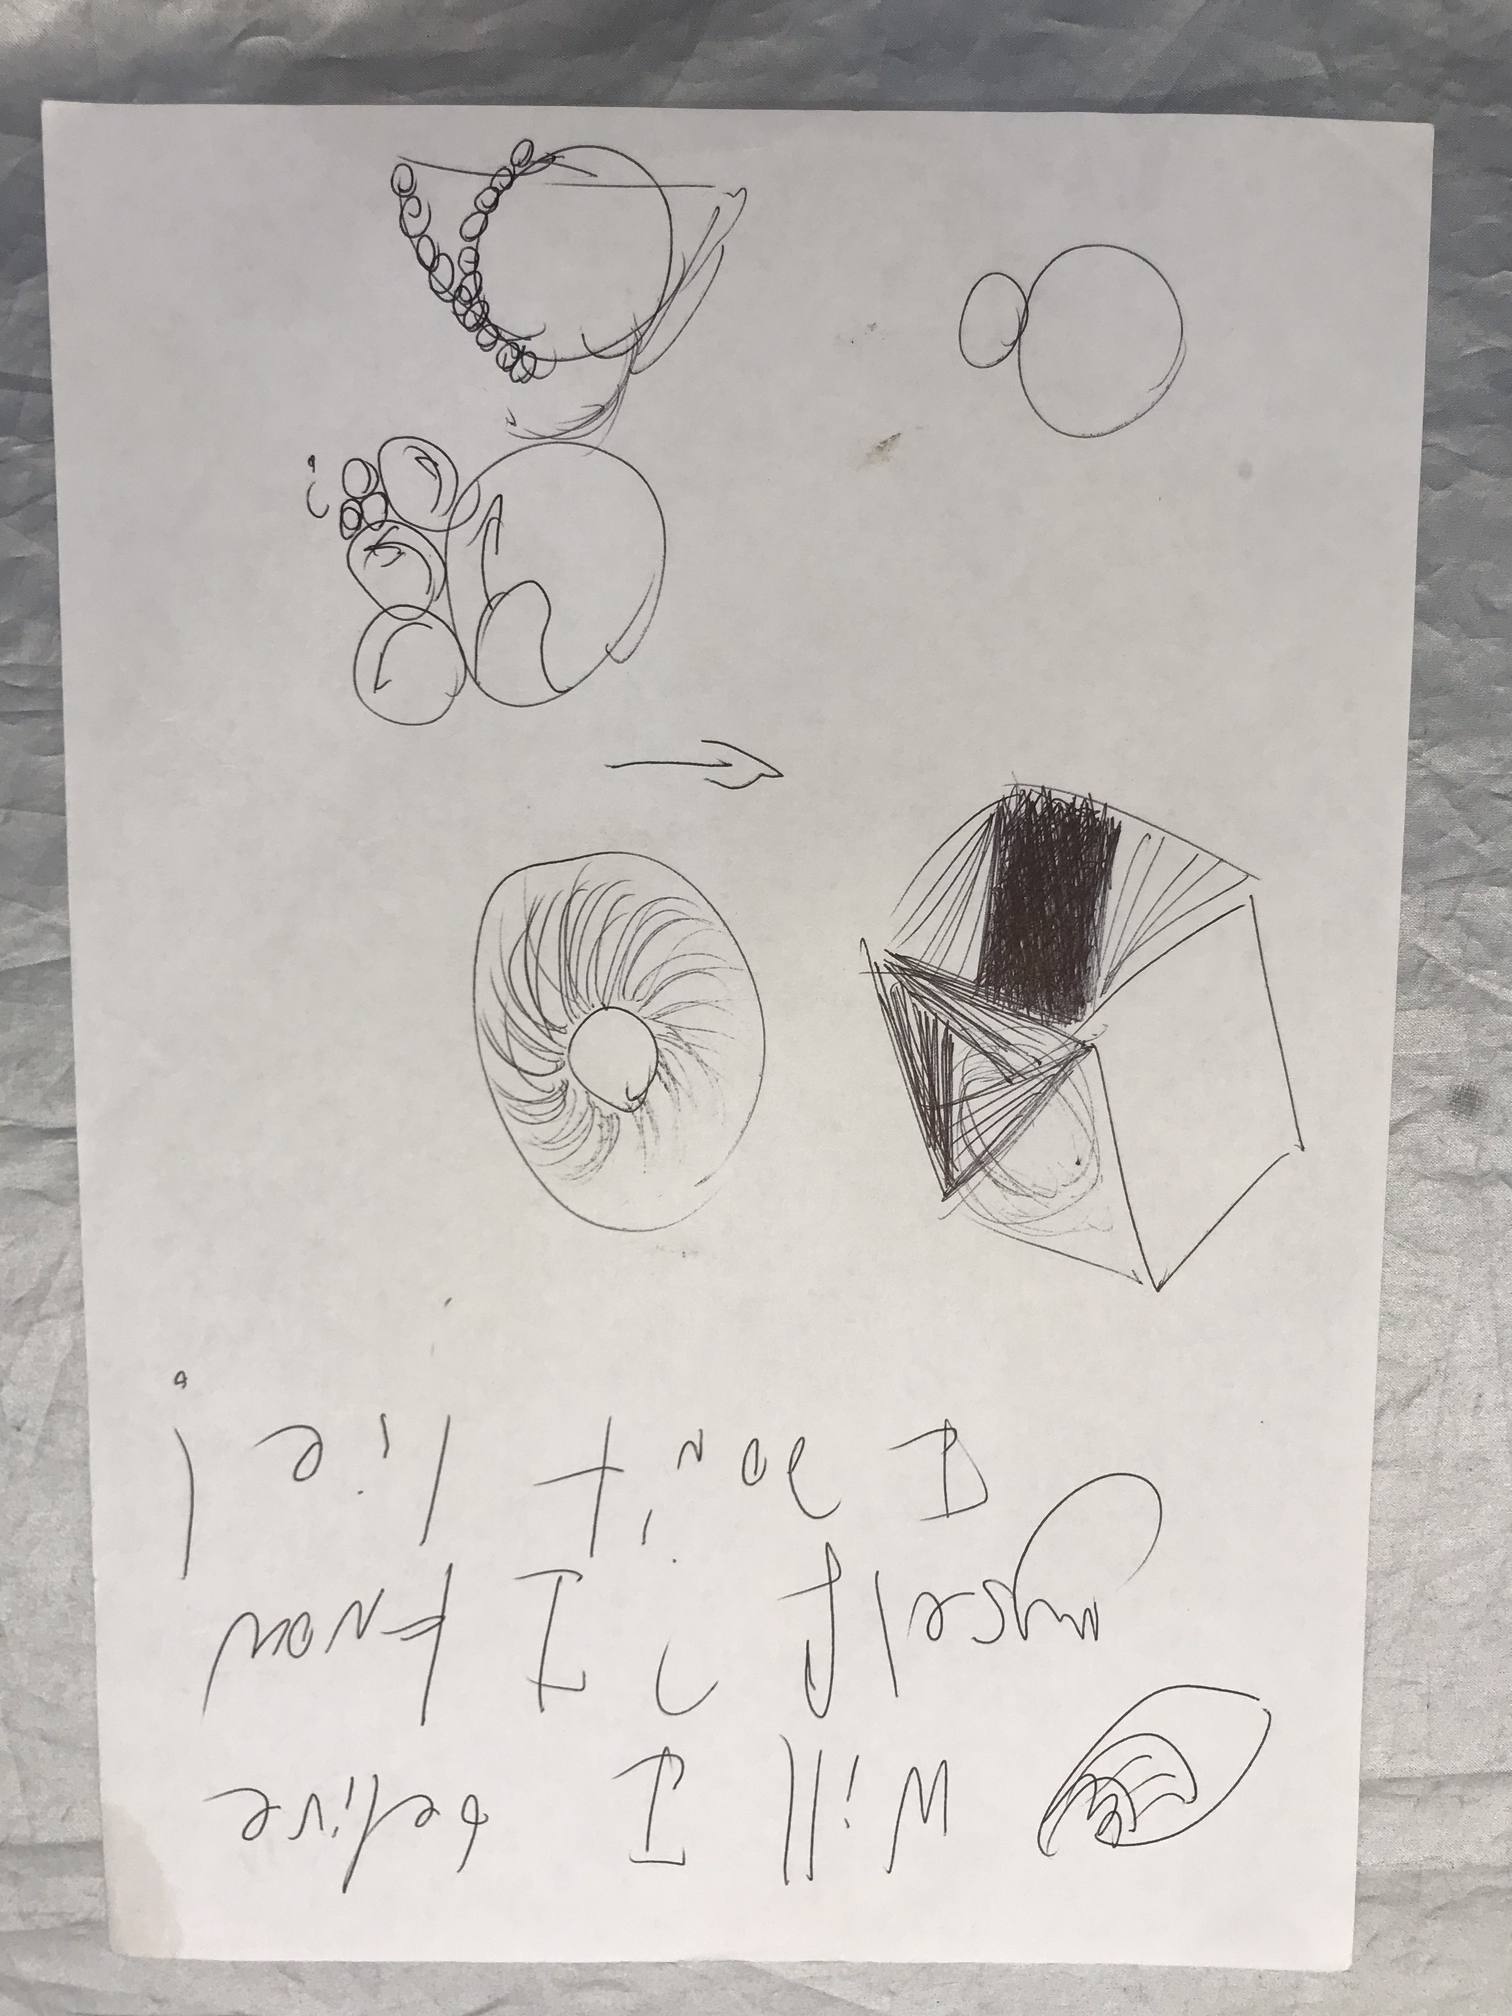 Will I belive
myself ? I know
I don't lie !
?